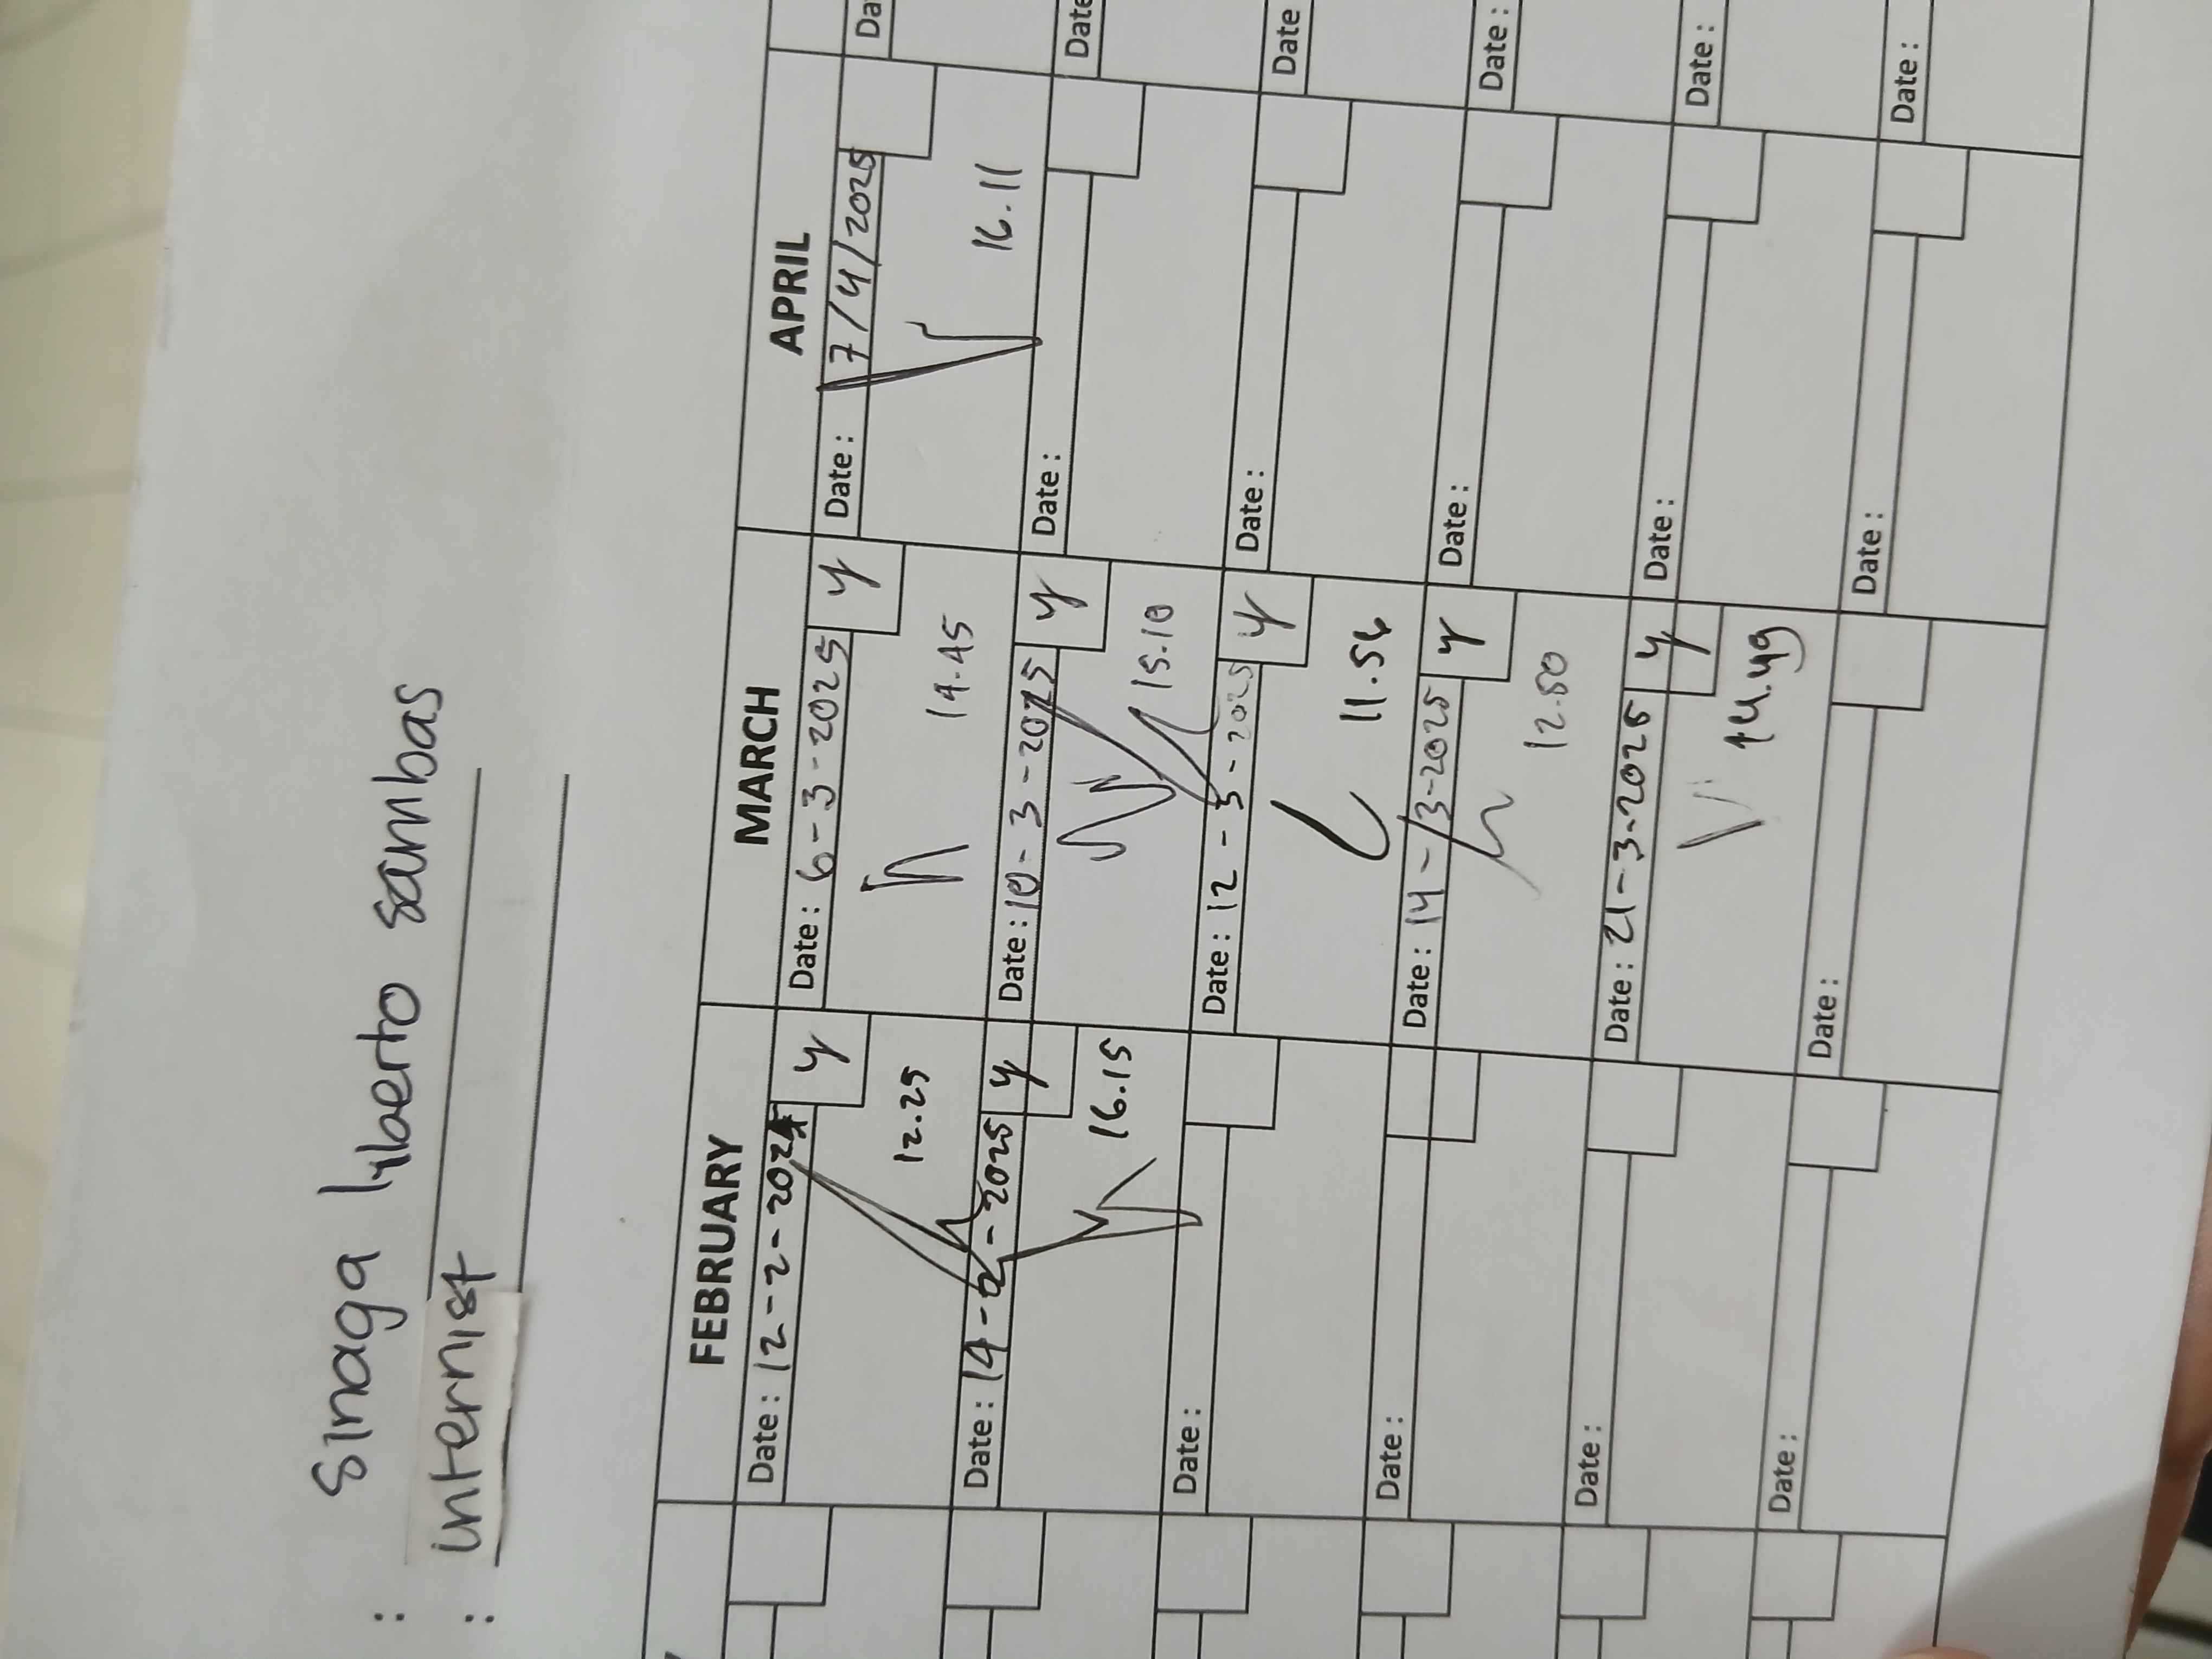 : Sinaga liberto sambas
: internist
FEBRUARY MARCH APRIL
Date : 12-2-2025 y Date : 6-3-2025 y Date : 7/4/2025 Da
12.25 14.45 16.11
Date : 14-2-2025 y Date : 10-3-2025 y Date : Date
16.15 15.10
Date : Date : 12-3-2025 y Date : Date
11.56
Date : Date : 14-3-2025 y Date : Date :
12.50
Date : Date : 21-3-2025 y Date : Date :
14.49
Date : Date : Date : Date :